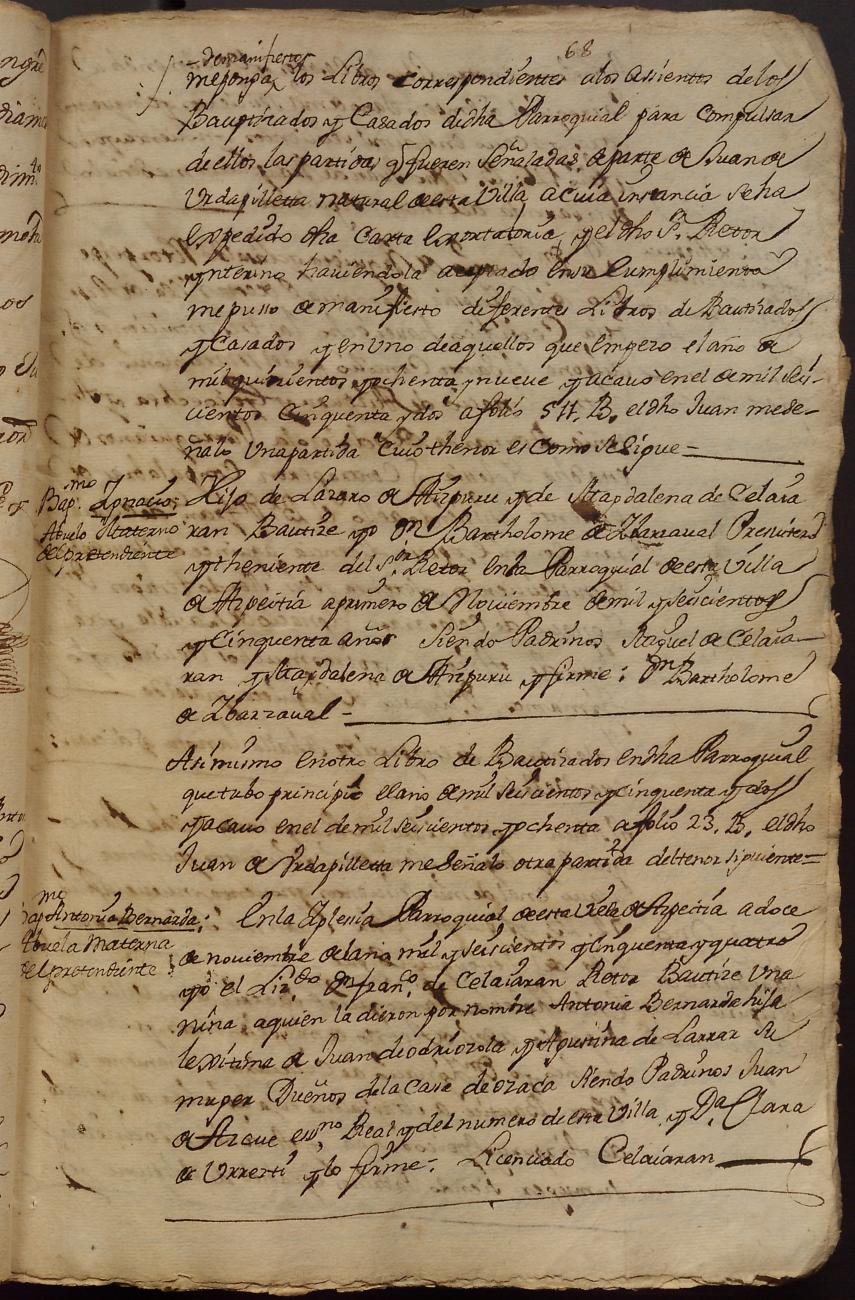 68
demanifiestos
me ponga los Libros correspondientes alos Assientos delos
Bauptiçados y Casados dicha Parroquial para Compulsar
de ellos las partidas q̃ fueren Señaladas de parte de Juan de
Urdapilletta natural de esta Villa acuia instancia se ha
expedido dha Carta Exortatoria, y el dho Sr. Retor
ynterino haviendola aceptado en su Cumplimiento
me pusso de manifiesto diferentes Libros de Bautiçados
y Casados y en Uno de aquellos que empezo el año de
mil quinientos y ochenta y nueve y acavo en el de mil seis-
cientos cinquenta y dos a folio 511. B. el dho Juan me se-
ñalo Una partida Cuio thenor es Como se sigue=
Bapmo Ygnacio;
Abuelo Materno
del pretendiente
Hijo de Lazaro de Aizpuru y de Magdalena de Celaia
ran Bautize yo Dn Bartholome de Ybarraval Presvitero
y theniente del Sor Retor en la Parroquial de esta Villa
de Azpeitia a primero de Noviembre de mil y seiscientos
y Cinquenta años Siendo Padrinos Raquel de Celaia-
ran y Magdalena de Aizpuru y firme: Dn Bartholome
de Ybarraval=
Asimismo en otro Libro de Bautizados en dha Parroquial
que tubo principio el año de mil seiscientos y cinquenta y dos
y acavo en el de mil seiscientos y ochenta a folio 23. B. el dho
Juan de Urdapilletta me señalo otra partida del tenor siguiente=
Bapmo Antonia Bernarda;
Abuela Materna
del pretendiente
En la Iglesia Parroquial de esta Villa de Azpeitia a doce
de noviembre del año mil y seiscientos y cinquenta y quatro
yo el Lizdo Dn franco de Celaiaran Retor Bautize Una
niña, aquien la dieron por nombre Antonia Bernarda hija
lexitima de Juan de odriozola y Agustina de Larrar su
muger Dueños de la Casa de ozada Siendo Padrinos Juan
de Azcue essno Real y del numero de esta Villa, y Da Clara
de Urresti y lo firme=. Licenciado Celaiaran